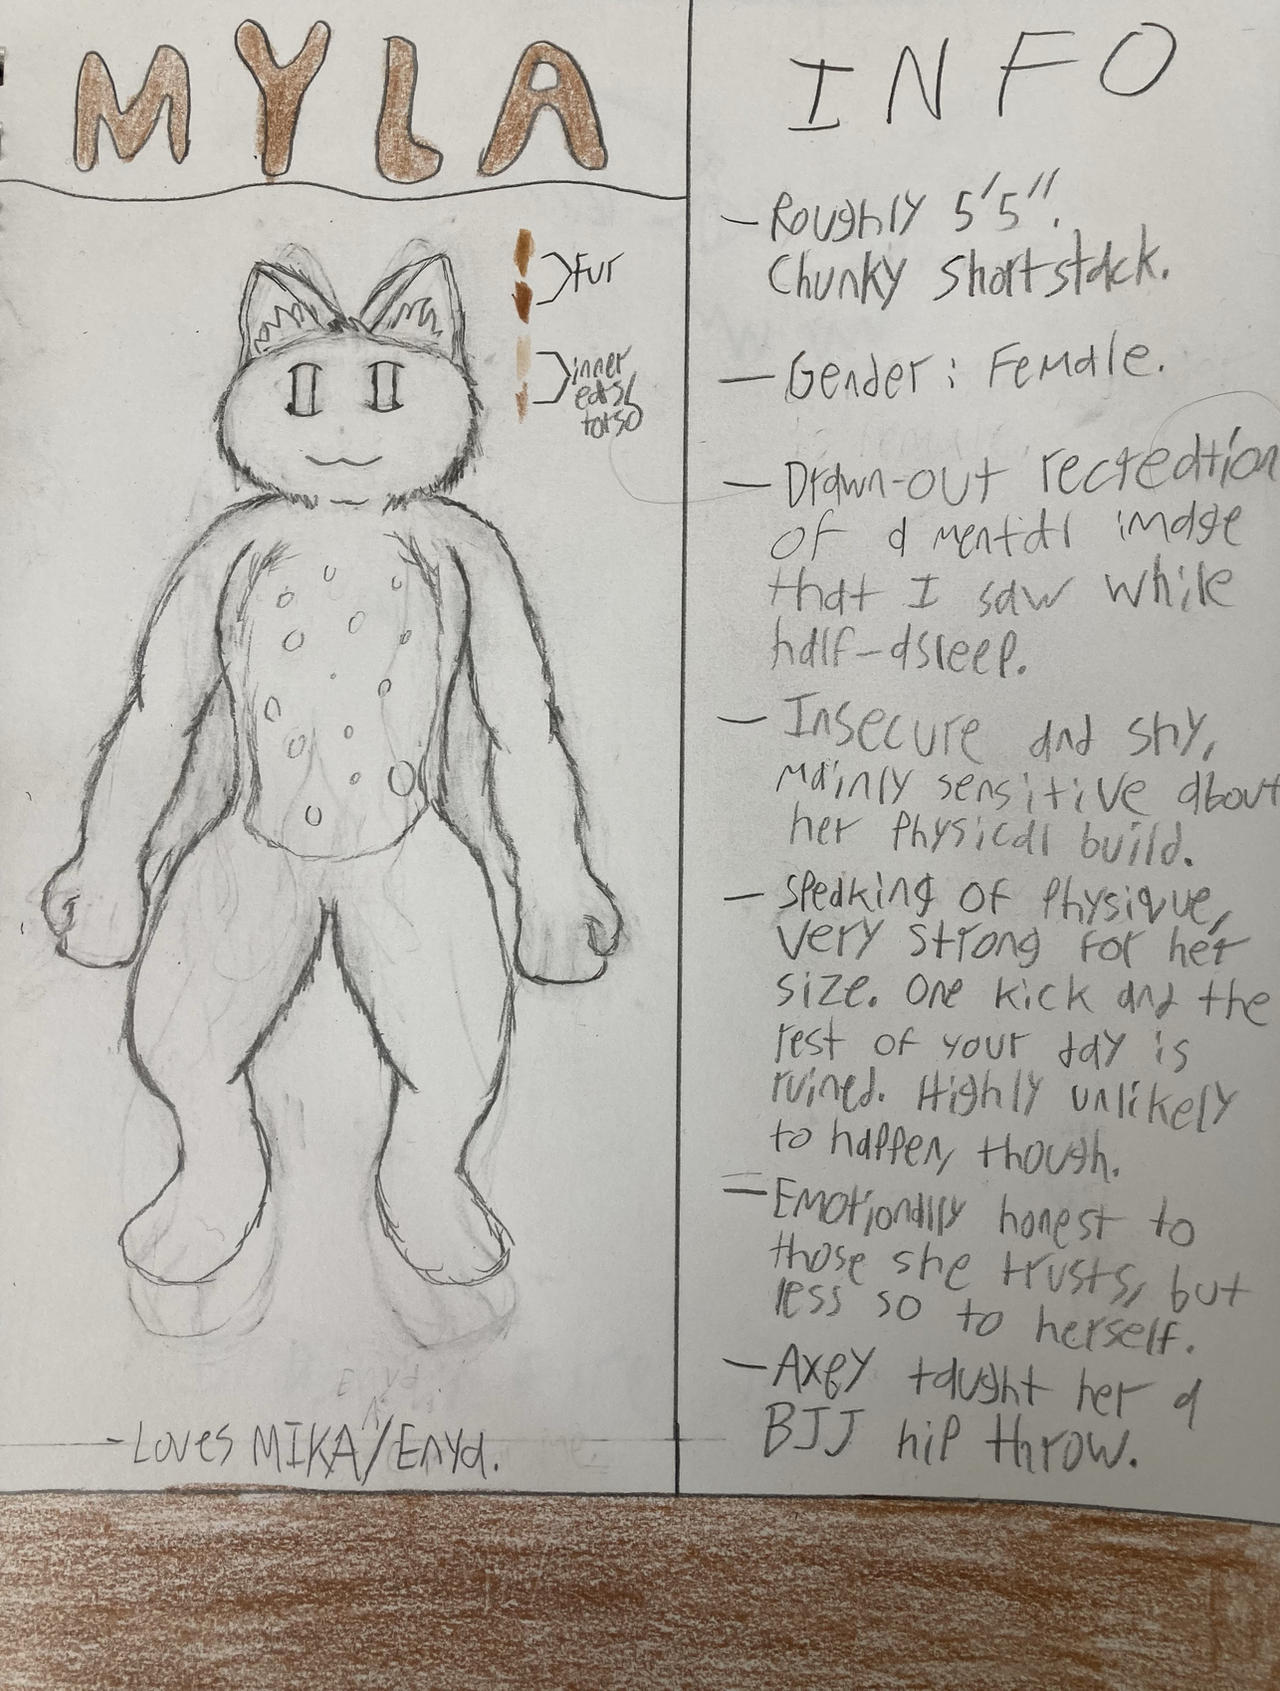 MYLA
fur
inner
ears/
torso
- Loves MIKA/Enya.
INFO
- Roughly 5'5".
Chunky shortstack.
- Gender: Female.
- Drawn-out recreation
of a mental image
that I saw while
half-asleep.
- Insecure and shy,
mainly sensitive about
her physical build.
- Speaking of physique,
very strong for her
size. One kick and the
rest of your day is
ruined. Highly unlikely
to happen, though.
- Emotionally honest to
those she trusts, but
less so to herself.
- Axey taught her a
BJJ hip throw.